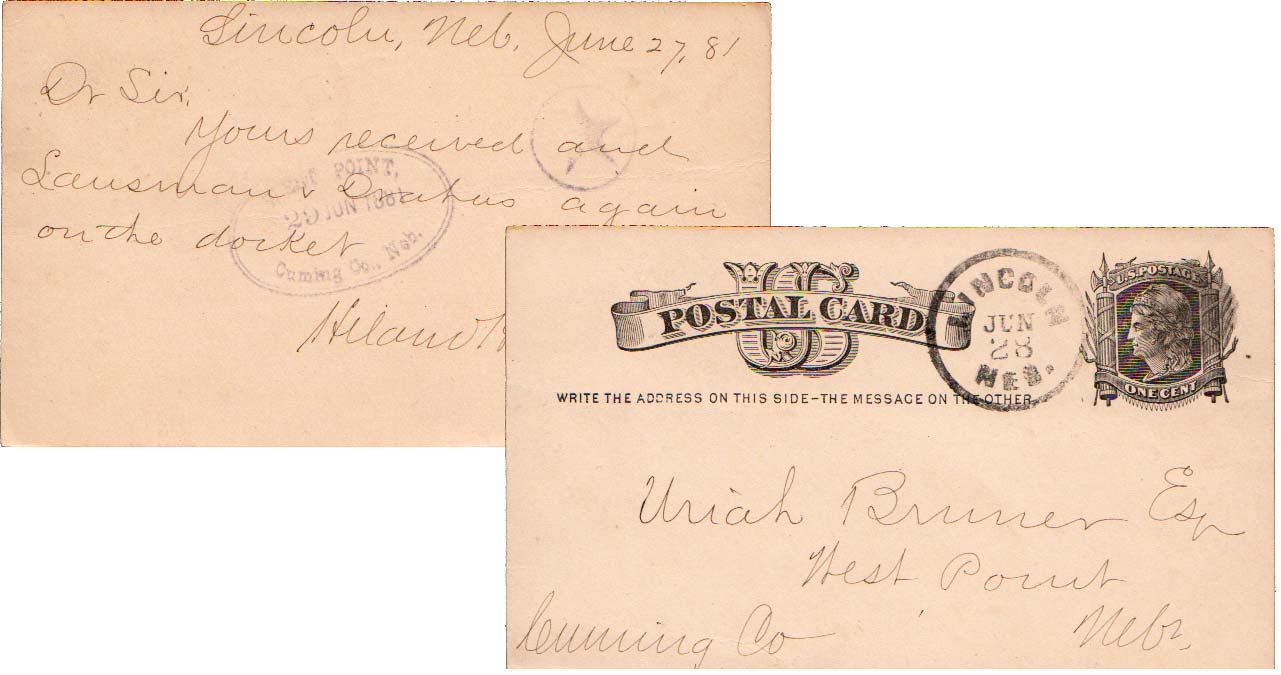 Lincoln, Neb. June 27, 81
Dr Sir,
Yours received and
Lausman & again
on the docket
Hiland
POINT,
29 JUN 1881
Cuming Co., Neb.
US
POSTAL CARD
WRITE THE ADDRESS ON THIS SIDE–THE MESSAGE ON THE OTHER
LINCOLN
JUN
28
NEB.
U.S. POSTAGE
ONE CENT
Uriah Bruner Esq
West Point
Cuming Co Nebr.